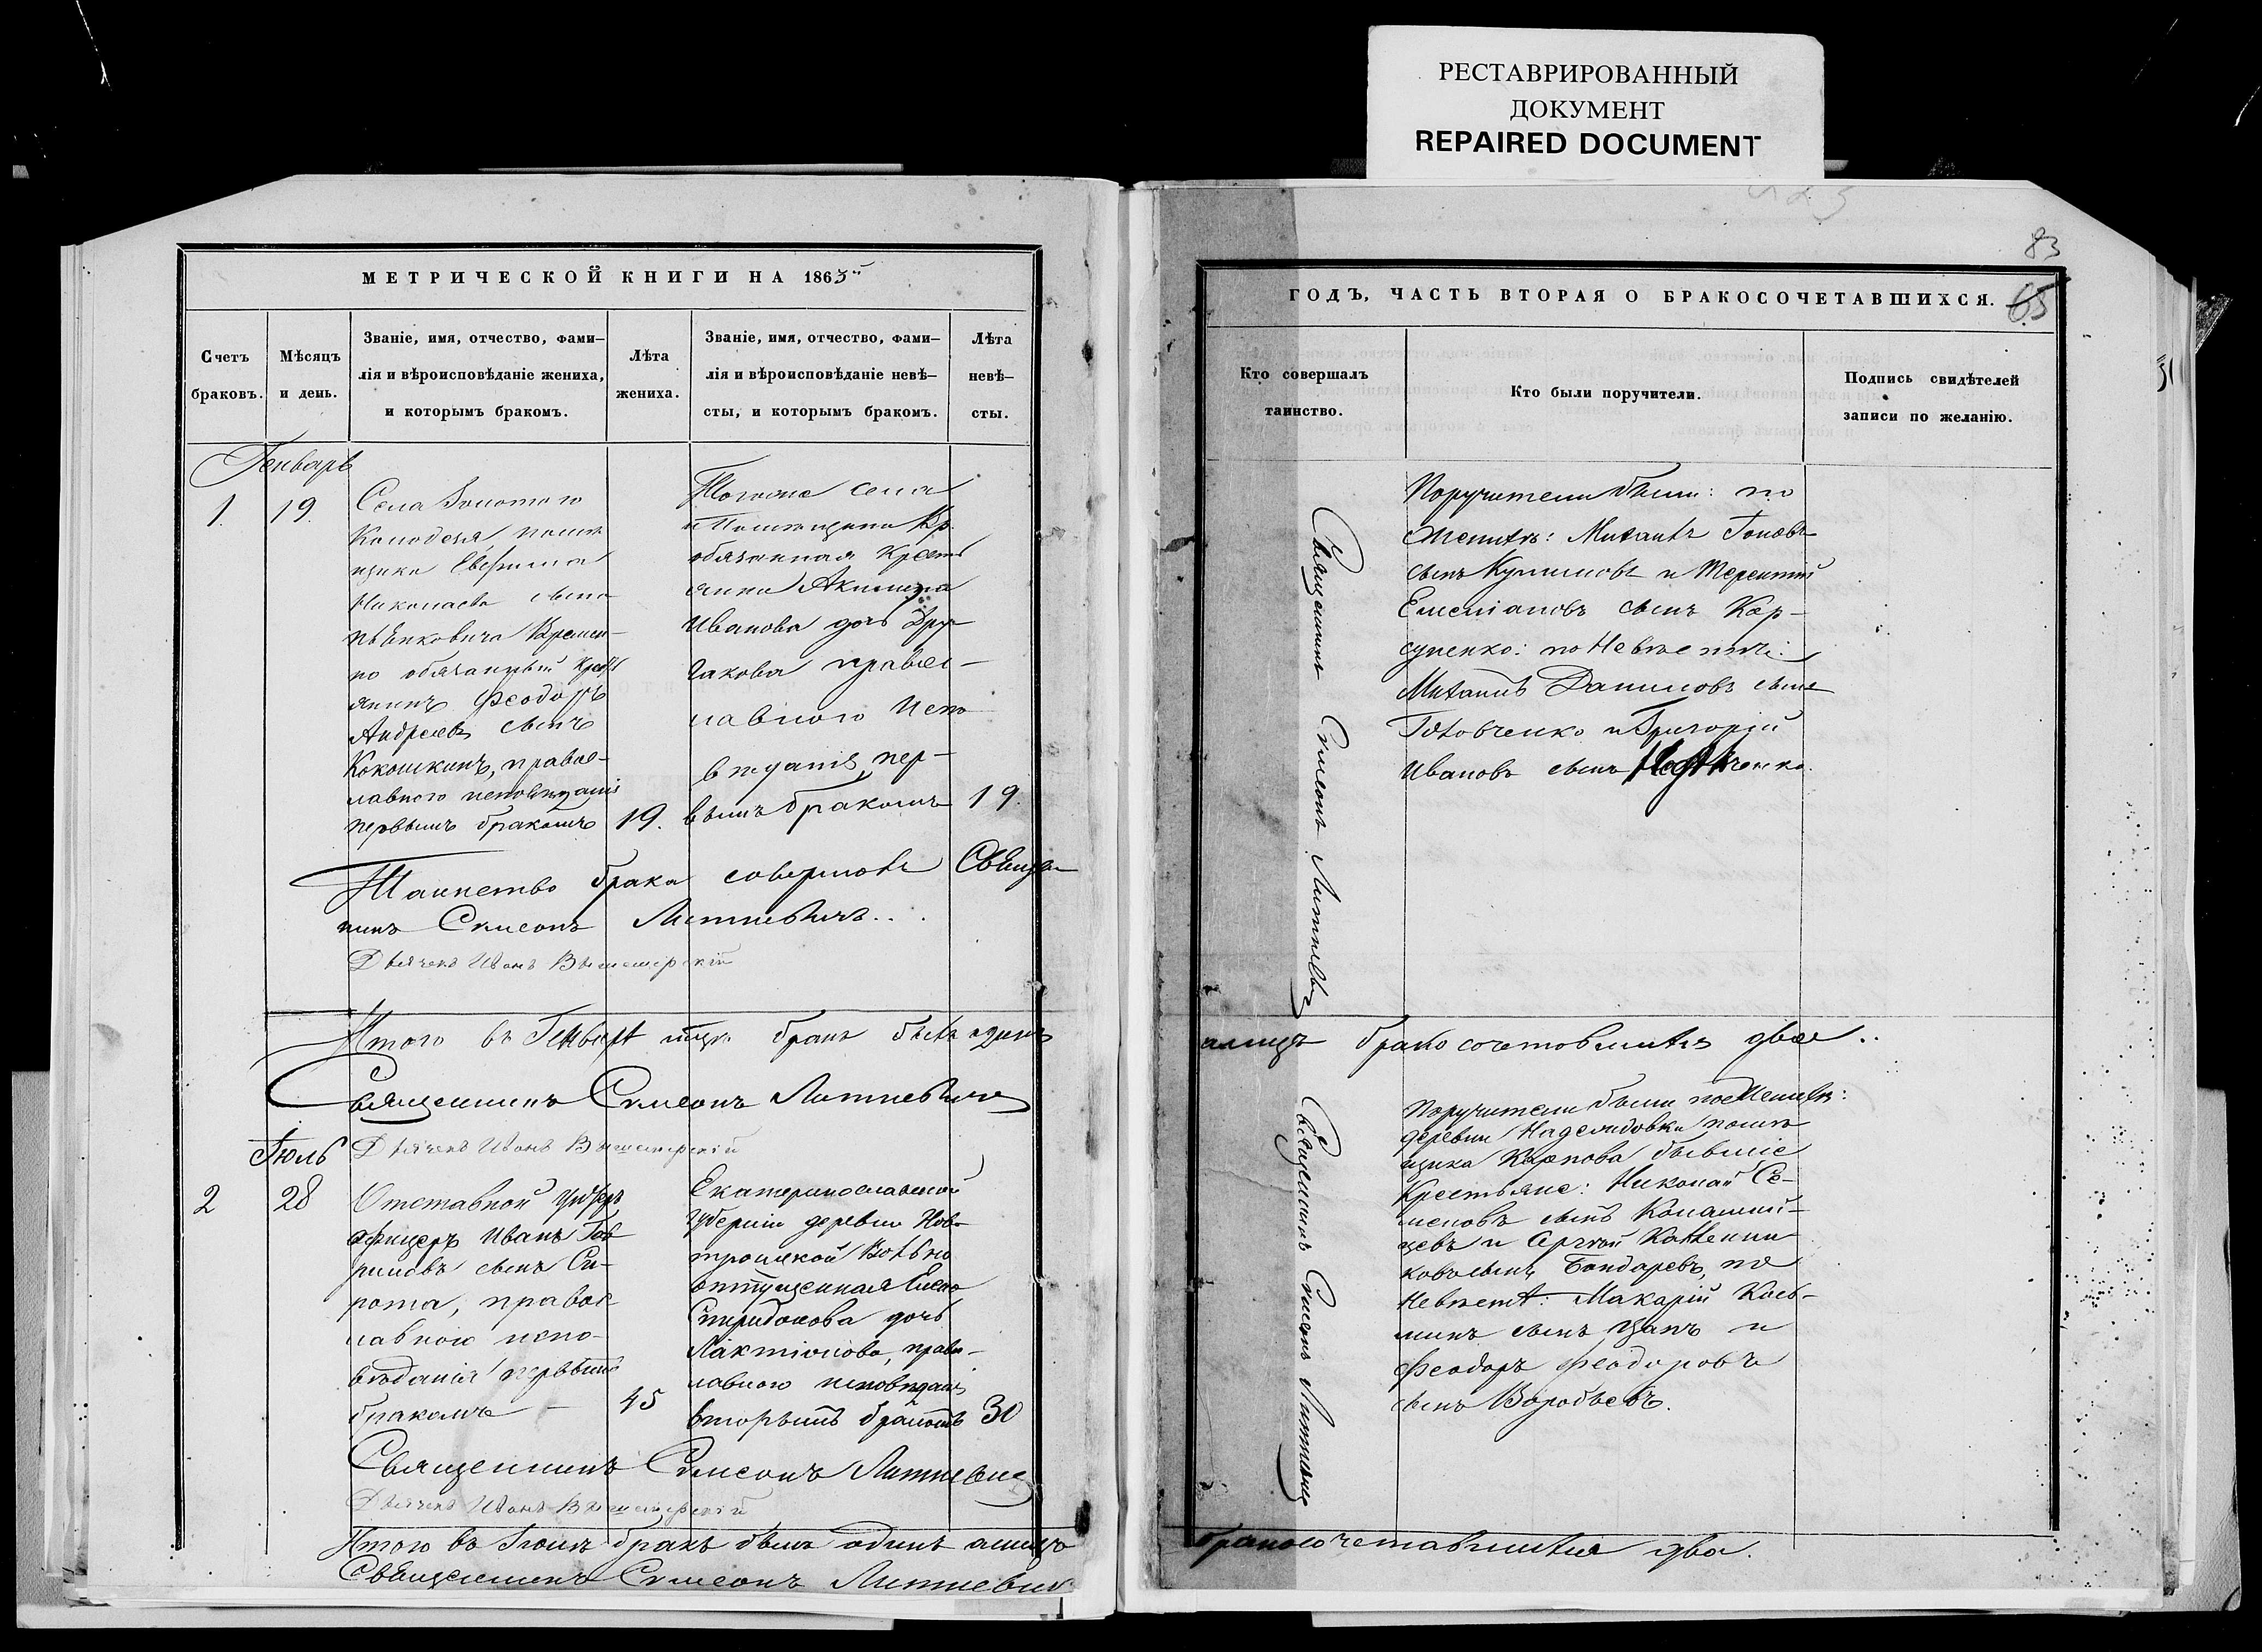 РЕСТАВРИРОВАННЫЙ
ДОКУМЕНТ
REPAIRED DOCUMENT
МЕТРИЧЕСКОЙ КНИГИ НА 1863
Счетъ браковъ.
Мѣсяцъ и день.
Званіе, имя, отчество, фами-
лія и вѣроисповѣданіе жениха,
и которымъ бракомъ.
Лѣта
жениха.
Званіе, имя, отчество, фами-
лія и вѣроисповѣданіе невѣ-
сты, и которымъ бракомъ.
Лѣта
невѣ-
сты.
Генварь
1.
19.
Села Золотого
Колодезя, помѣ
щика
Николаева сына
Времен-
но обязанный крест
янинъ Феодоръ
Андреевъ сынъ
Кокошкинъ, правос-
лавного исповѣданія
первымъ бракомъ
19.
Тогоже села
и Помѣщика Вр.
обязанная Кресть
янка Акилина
Иванова дочь Дру-
гакова правос-
лавного испо
вѣданія, пер-
вымъ бракомъ
19.
Таинство брака совершалъ Священ
никъ Симеонъ Литкевичъ..
Дьячекъ Иванъ
Итого въ Генварѣ мцѣ бракъ былъ одинъ
Священникъ Симеонъ Литкевичъ
Іюль
Дьячекъ Иванъ
2
28
Отставной Унтеръ
офицеръ Иванъ Гав
риловъ сынъ Си-
рота, правос
лавного испо-
вѣданія первымъ
бракомъ
45
Екатеринославской
Губерніи деревни Ново
троицкой Вольно
отпущенная Елена
Спиридонова дочь
Лактіонова, право-
лавного исповѣданія
вторымъ бракомъ
30
Священникъ Симеонъ Литкевичъ
Дьячекъ Иванъ
Итого въ Іюлѣ бракъ былъ одинъ алицъ
Священникъ Симеонъ Литкевичъ
83
65
ГОДЪ, ЧАСТЬ ВТОРАЯ О БРАКОСОЧЕТАВШИХСЯ.
Кто совершалъ
таинство.
Кто были поручители.
Подпись свидѣтелей
записи по желанію.
Священникъ Симеонъ Литкевичъ
Поручители были: по
Женихѣ: Михаилъ
сынъ и Терентій
Емеліановъ сынъ Кор-
суненко: по Невѣстѣ:
Михаилъ Даниловъ сынъ
и Григорій
Ивановъ сынъ
алицъ бракосочетовшихъ двое..
Священникъ Симеонъ Литкевичъ
Поручители были по Женихѣ:
деревни помѣ
щика Карпова бывшіе
Крестьяне: Николай Се-
меновъ сынъ
цевъ и
сынъ Бондаревъ, по
Невѣстѣ: Макарій Козь-
минъ сынъ Цапъ и
Феодоръ Феодоровъ
сынъ Воробьевъ.
бракосочетавшихся два.